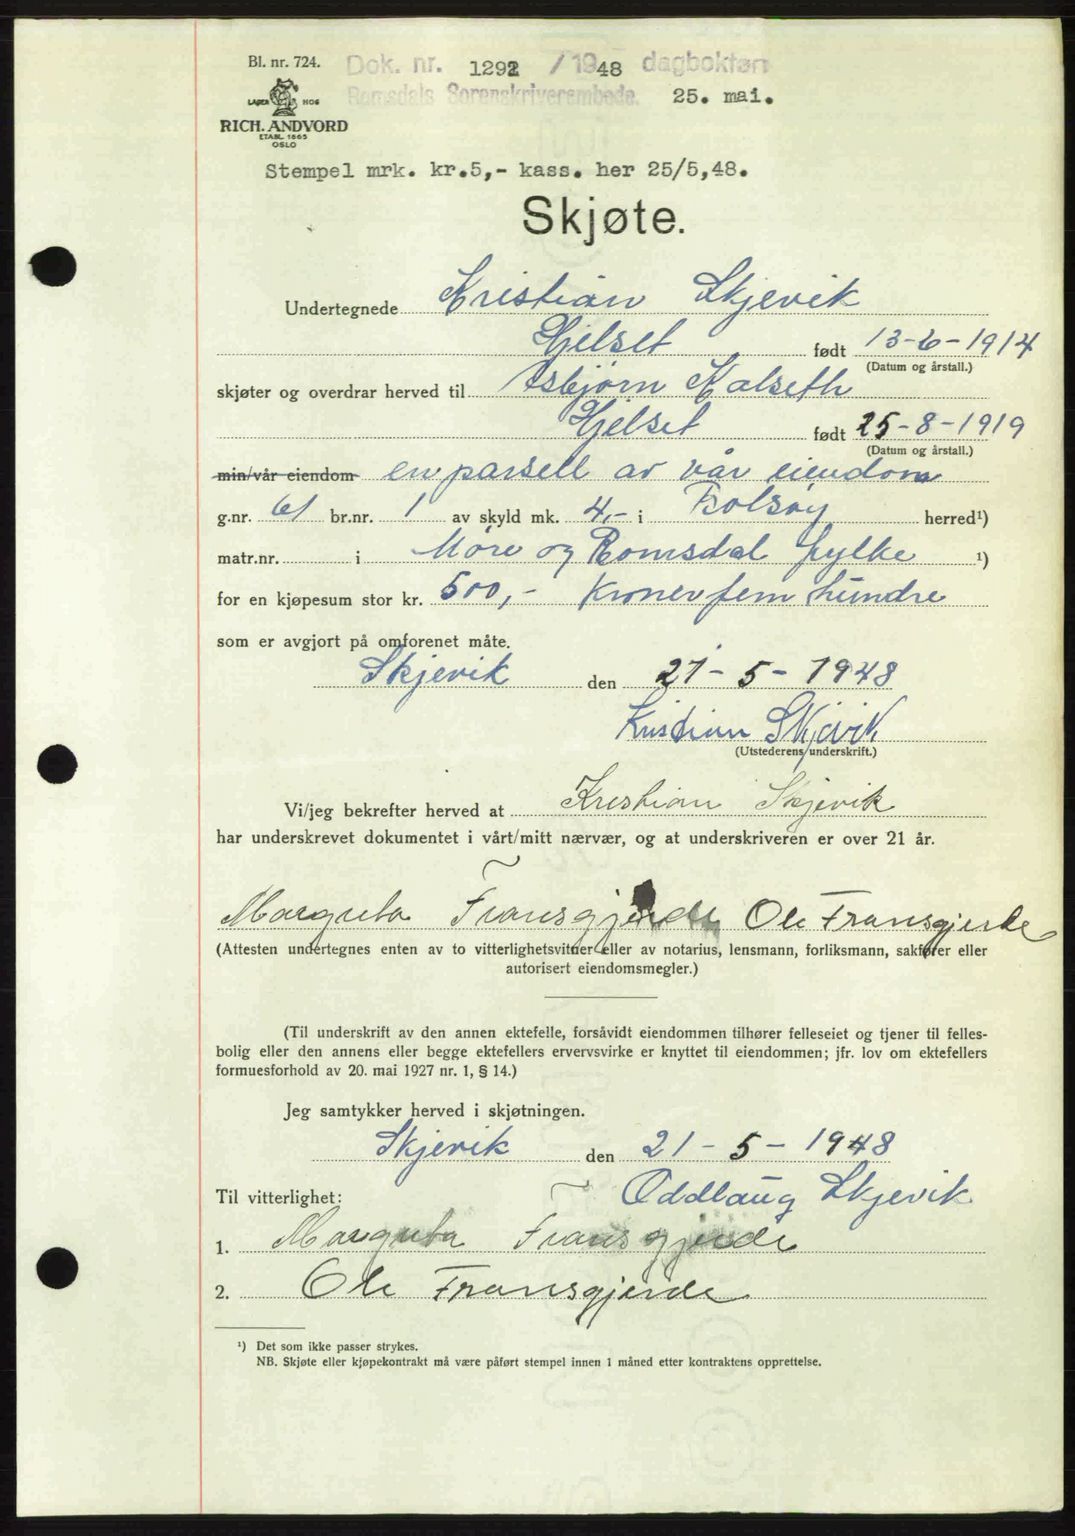 Bl. nr. 724.
Dok. nr. 1292 / 1948 dagbokført
Romsdals Sorenskriverembede. 25. mai.
LAGER HOS
RICH. ANDVORD
ETABL. 1865
OSLO
Stempel mrk. kr.5,- kass. her 25/5,48.
Skjøte.
Undertegnede Kristian Skjevik
Hjelset født 13-6-1914
(Datum og årstall.)
skjøter og overdrar herved til Asbjørn Kalseth
Hjelset født 25-8-1919
(Datum og årstall.)
min/vår eiendom en parsell av vår eiendom
g.nr. 61 br.nr. 1 av skyld mk. 4,- i Bolsøy herred¹)
matr.nr. i Møre og Romsdal fylke ¹)
for en kjøpesum stor kr. 500,- Kroner fem hundre
som er avgjort på omforenet måte.
Skjevik den 21-5-1948
Kristian Skjevik
(Utstederens underskrift.)
Vi/jeg bekrefter herved at Kristian Skjevik
har underskrevet dokumentet i vårt/mitt nærvær, og at underskriveren er over 21 år.
Margreta Fransgjerde Ole Fransgjerde
(Attesten undertegnes enten av to vitterlighetsvitner eller av notarius, lensmann, forliksmann, sakfører eller
autorisert eiendomsmegler.)
(Til underskrift av den annen ektefelle, forsåvidt eiendommen tilhører felleseiet og tjener til felles-
bolig eller den annens eller begge ektefellers ervervsvirke er knyttet til eiendommen; jfr. lov om ektefellers
formuesforhold av 20. mai 1927 nr. 1, § 14.)
Jeg samtykker herved i skjøtningen.
Skjevik den 21-5-1948
Til vitterlighet: Oddlaug Skjevik
1. Margreta Fransgjerde
2. Ole Fransgjerde
¹) Det som ikke passer strykes.
NB. Skjøte eller kjøpekontrakt må være påført stempel innen 1 måned etter kontraktens opprettelse.